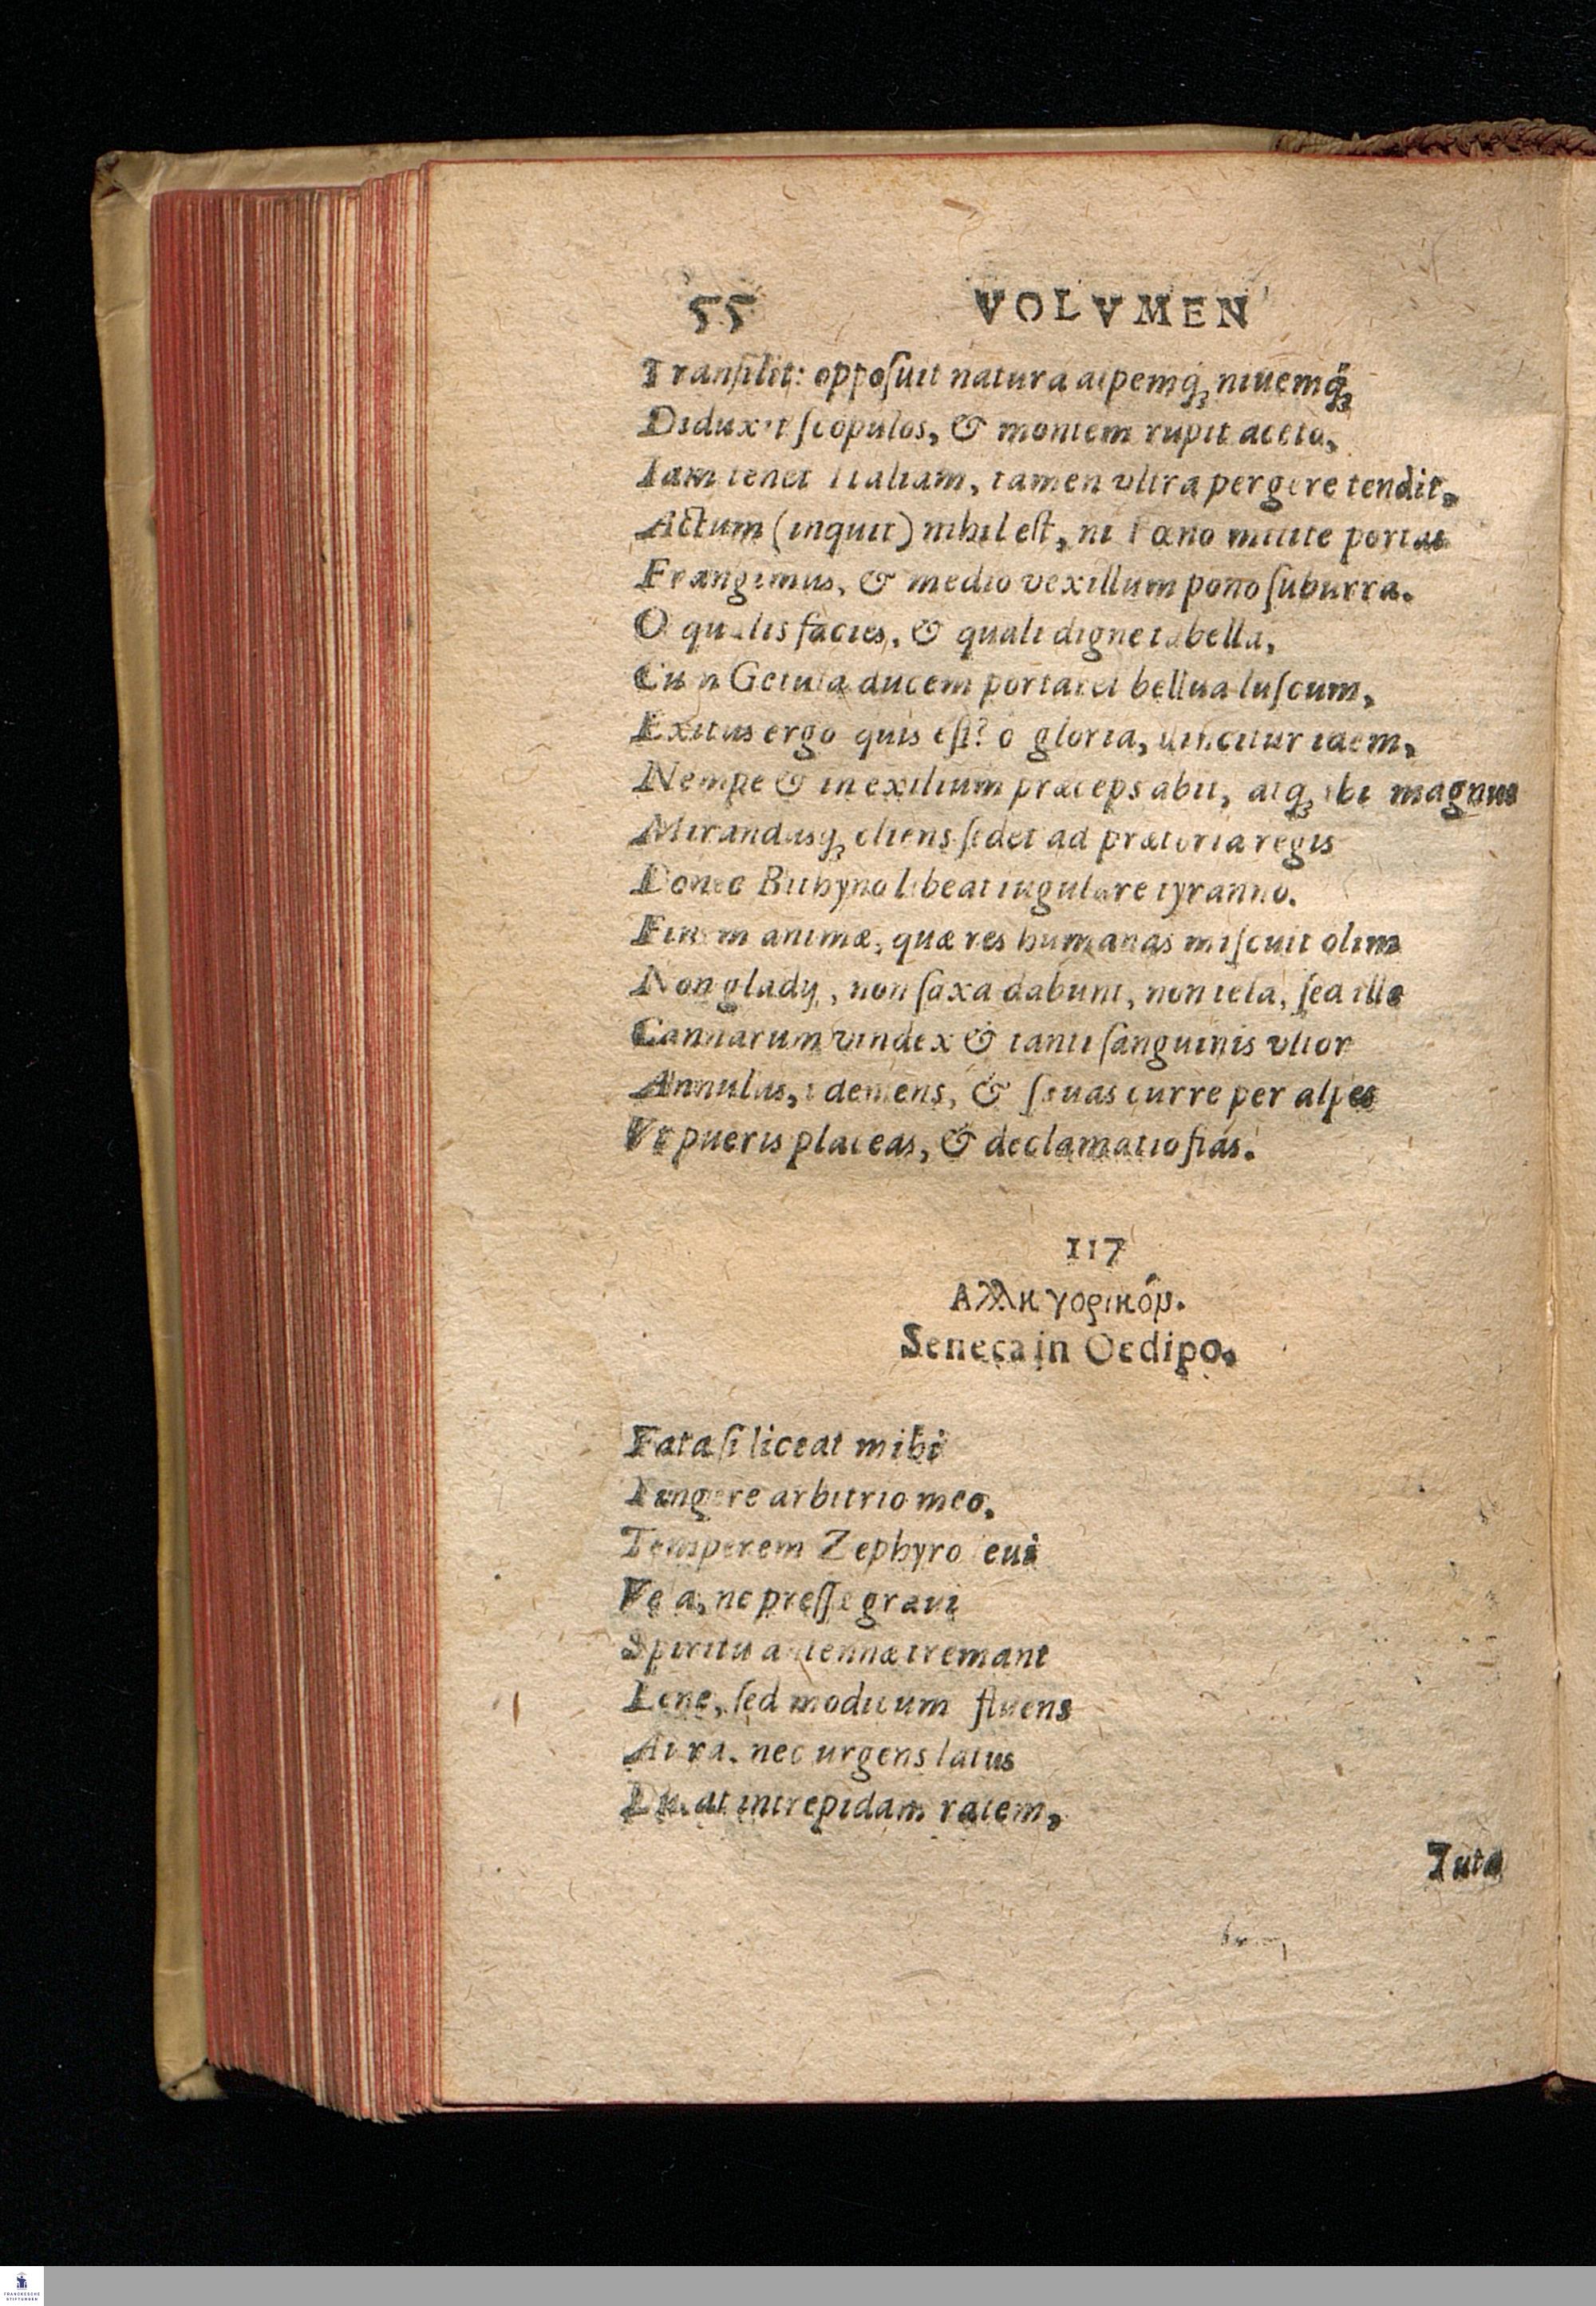 55 VOLVMEN
Tranſilit: oppoſuit natura alpemq́; niuemq́;
Diduxit ſcopulos, & montem rupit aceto,
Iam tenet Italiam, tamen vltra pergere tendit,
Actum (inquit) nihil eſt, ni Pœno milite portas
Frangimus, & medio vexillum pono ſuburra.
O qualis facies, & quali digne tabella,
Cum Getula ducem portaret bellua luſcum,
Exitus ergo quis eſt? ô gloria, uincitur idem,
Nempe & in exilium præceps abit, atq; ibi magnus
Mirandusq; cliens ſedet ad prætoria regis
Donec Bithyno libeat iugulare tyranno.
Finem animæ, quæ res humanas miſcuit olim
Non gladij, non ſaxa dabunt, non tela, ſed ille
Cannarum vindex & tanti ſanguinis vltor
Annulus, i demens, & ſæuas curre per alpes
Vt pueris placeas, & declamatio fias.
117
Αλληγορικόν.
Seneca in Oedipo.
Fata ſi liceat mihi
Fingere arbitrio meo,
Temperem Zephyro leui
Vela, ne preſſæ graui
Spiritu antennæ tremant
Lene, ſed modicum fluens
Aura, nec urgens latus
Ducat intrepidam ratem,
Tuta
FRANCKESCHE
STIFTUNGEN